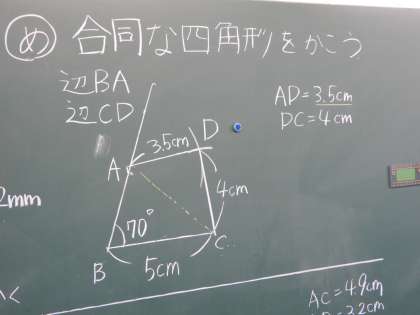 め 合同な四角形をかこう
辺BA
辺CD
AD=3.5cm
DC=4cm
3.5cm
D
A
4cm
2mm
70°
B
5cm
C
AC=4.9cm